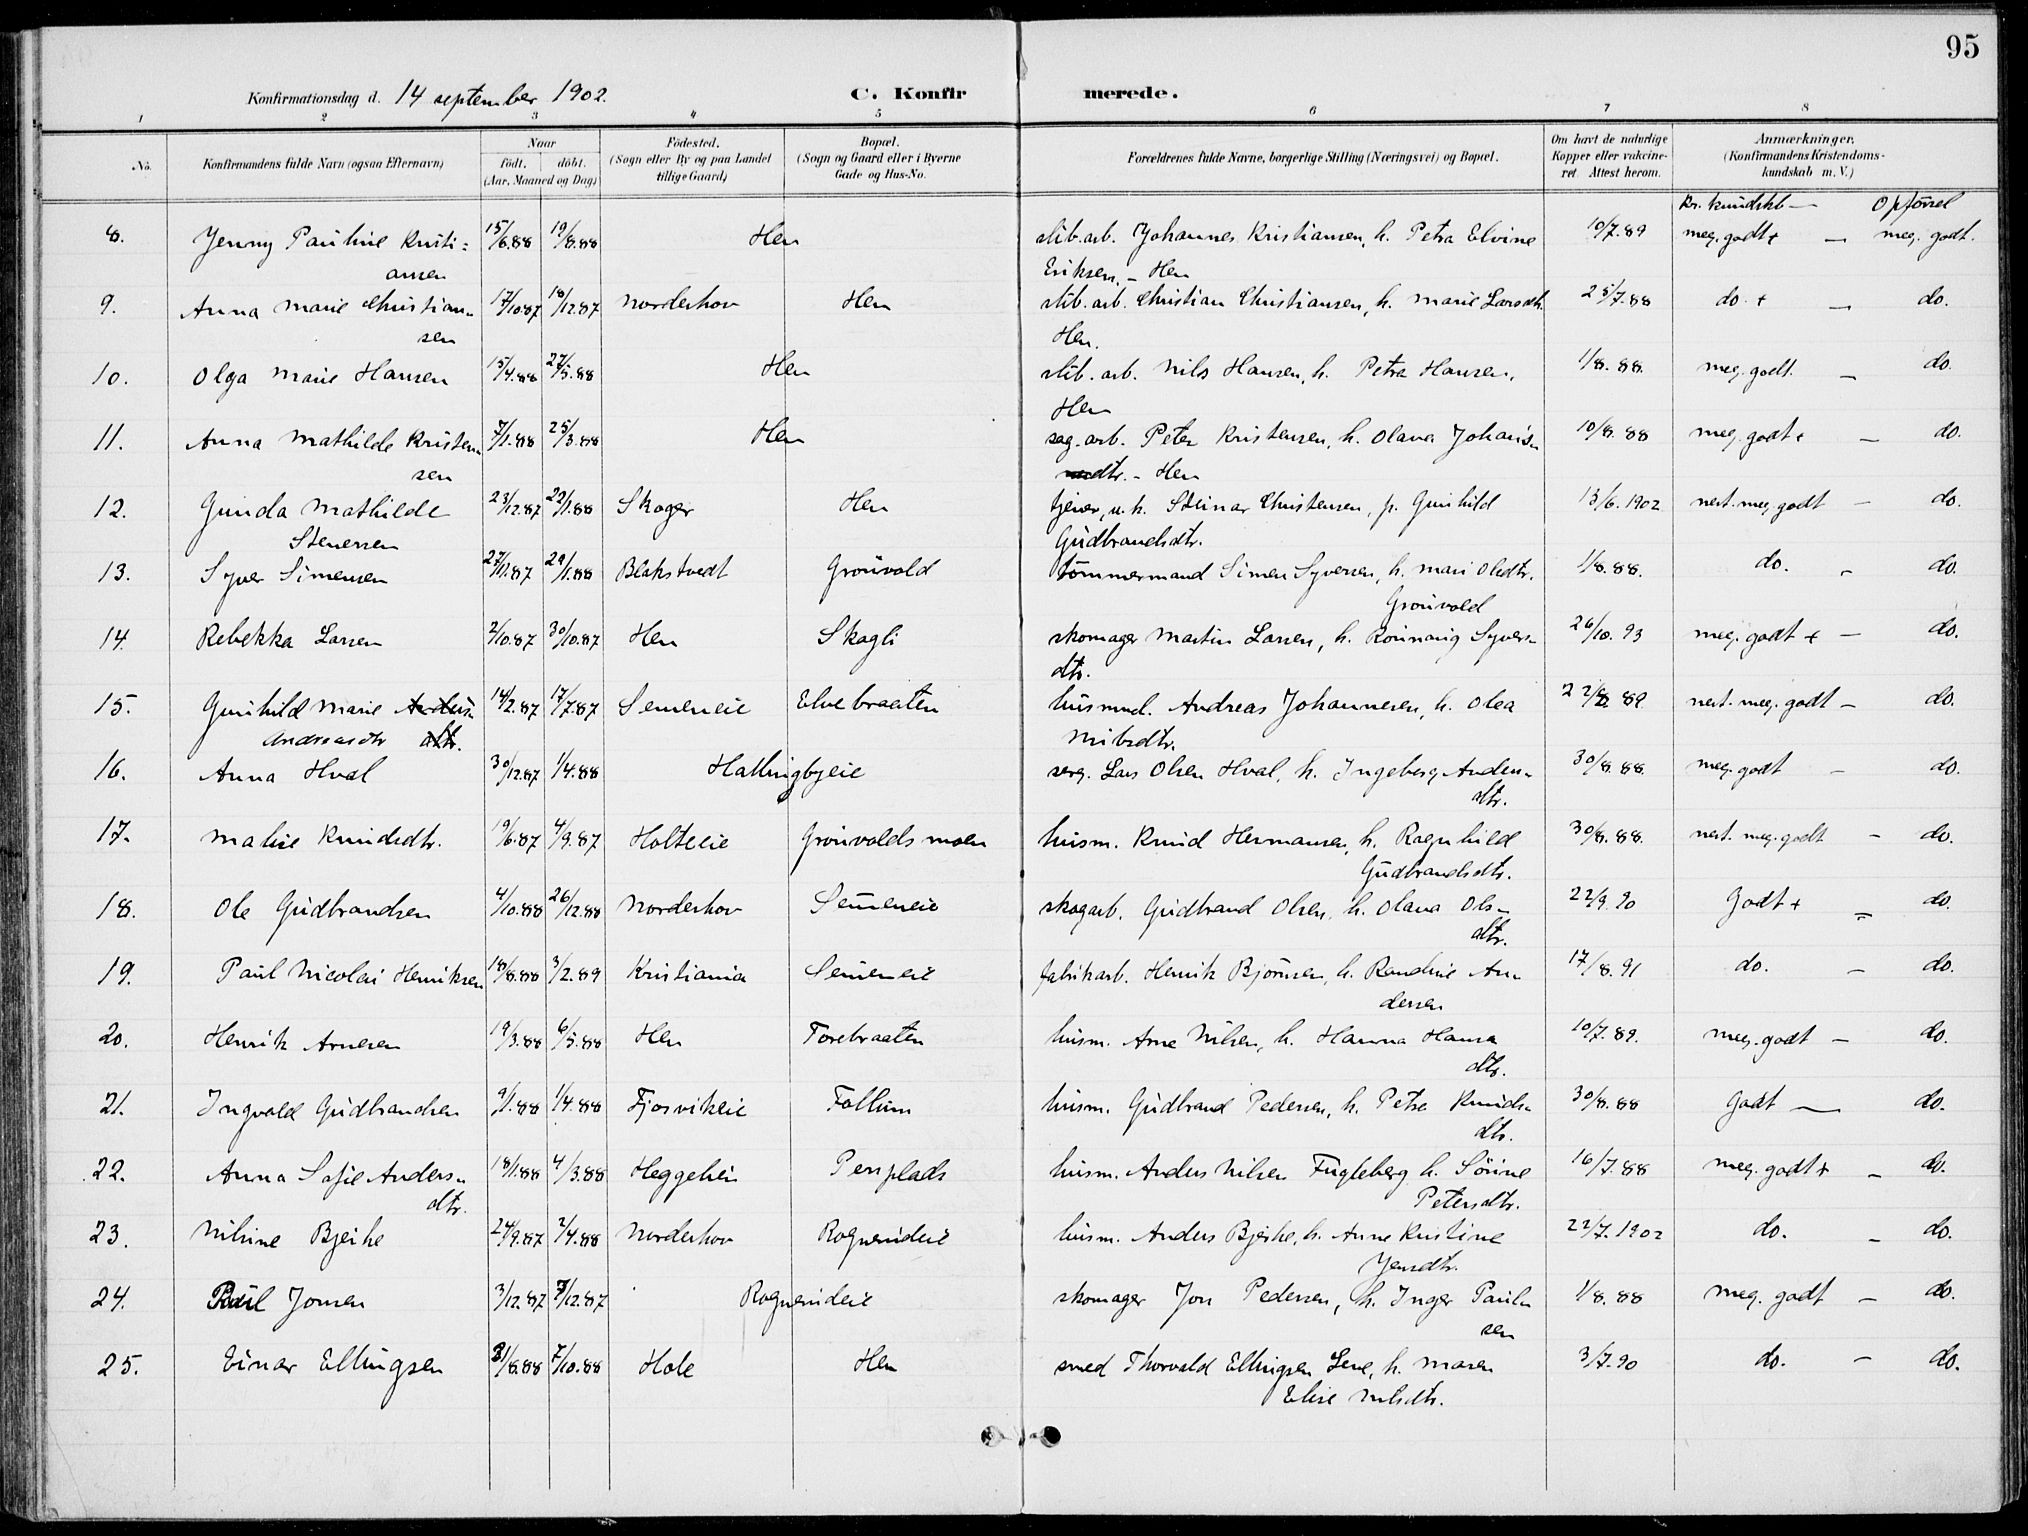 95
Konfirmationsdag d. 14 september 1902. C. Konfir merede.
1 2 3 4 5 6 7 8
No. Konfirmandens fulde Navn (ogsaa Efternavn) Naar født, døbt. (Aar, Maaned og Dag) Fødested. (Sogn eller By og paa Landet tillige Gaard) Bopæl. (Sogn og Gaard eller i Byerne Gade og Hus-No. Forældrenes fulde Navne, borgerlige Stilling (Næringsvei) og Bopæl. Om havt de naturlige Kopper eller vakcineret. Attest herom. Anmærkninger. (Konfirmandens Kristendomskundskab m. V.)
Kr. kundskb — Opførsel
8. Jenny Pauline Kristi= 15/6.88 19/8.88 Hen slib.arb. Johannes Kristiansen, h. Petra Elvine 10/7.89 meg. godt + — meg. godt.
ansen Eriksen, – Hen
9. Anna Marie Christian- 17/10.87 18/12.87 Norderhov Hen slib.arb. Christian Christiansen, h. Marie Larsdtr. 25/7.88 do. + — do.
sen Hen.
10. Olga Marie Hansen 15/4.88 27/5.88 Hen slib. arb. Nils Hansen, h. Petra Hansen, 1/8.88. meg. godt. — do.
Hen
11. Anna Mathilde Kristen- 7/1.88 25/3.88 Hen sag.arb. Peter Kristensen, h. Olava Johans- 10/8.88 meg. godt + — do.
sen dtr. – Hen
12. Gunda Mathilde 23/12.87 22/1.88 Skoger Hen tjener, u.k. Steinar Christensen, p. Gunhild 13/6.1902 nest. meg. godt — do.
Stenersen Gudbrandsdtr.
13. Syver Simensen 27/11.87 29/1.88 Blakstvedt Grønvold tømmermand Simen Syversen, h. Mari Olsdtr. 1/8.88. do. – do.
Grønvold
14. Rebekka Larsen 2/10.87 30/10.87 Hen Skagli skomager Martin Larsen, h. Rønnaug Syvers- 26/10.93 meg. godt + — do.
dtr.
15. Gunhild Marie 14/2.87 17/7.87 Semeneie Elvebraaten husmd. Andreas Johannesen, h. Olea 22/8.89. nest. meg. godt — do.
Andreasdtr dtr. Nilsdtr.
16. Anna Hval 30/12.87 1/4.88 Hallingbyeie serg. Lars Olsen Hval, h. Ingeborg Anders- 30/8.88. meg. godt — do.
dtr.
17. Malise Knudsdtr. 19/6.87 4/9.87 Holteeie Grønvolds moen husm. Knud Hermansen, h. Ragnhild 30/8.88. nest. meg. godt — do.
Gudbrandsdtr.
18. Ole Gudbrandsen 4/10.88 26/12.88 Norderhov Semeneie skogarb. Gudbrand Olsen, h. Olava Ols- 22/9.90 Godt + — do.
dtr.
19. Paul Nicolai Henriksen 18/8.88 3/2.89 Kristiania Semeneie fabrikarb. Henrik Bjørnsen, h. Randine An- 17/8.91 do. — do.
dersen
20. Henrik Arnesen 19/3.88 6/5.88 Hen Torebraaten husm. Arne Nilsen, h. Hanna Hans 10/7.89. meg. godt — do.
dtr.
21. Ingvald Gudbrandsen 9/1.88 1/4.88 Fjosvikeie Follum husm. Gudbrand Pedersen, h. Petra Knuds- 30/8.88 Godt — do.
dtr.
22. Anna Sofie Anders- 18/1.88 4/3.88 Heggelien Perplads husm. Anders Nilsen Fugleberg h. Sørine 16/7.88 meg. godt + — do.
dtr. Petersdtr.
23. Nilsine Bjerke 24/9.87 2/4.88 Norderhov Rogneruldeie husm. Anders Bjerke, h. Anne Kristine 22/7.1902 do. – do.
Jensdtr.
24. Paul Jonsen 3/12.87 /12.87 Rogneruldeie skomager Jon Pedersen, h. Inger Paul- 1/8.88 meg. godt — do.
sen
25. Einar Ellingsen 31/8.88 7/10.88 Hole Hen smed Thorvald Ellingsen Lene, h. Maren 3/7.90 do. — do.
Elise Nilsdtr.